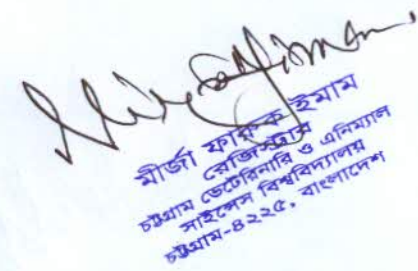 মীর্জা ফারুক ইমাম
রেজিস্ট্রার
চট্টগ্রাম ভেটেরিনারি ও এনিম্যাল
সাইন্সেস বিশ্ববিদ্যালয়
চট্টগ্রাম-৪২২৫, বাংলাদেশ